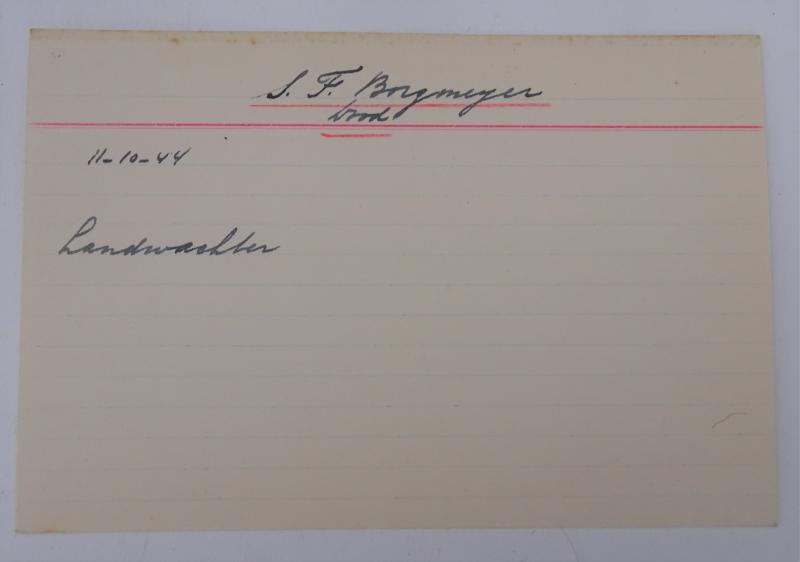 S. F. Borgmeyer
dood
11-10-44
Landwachter